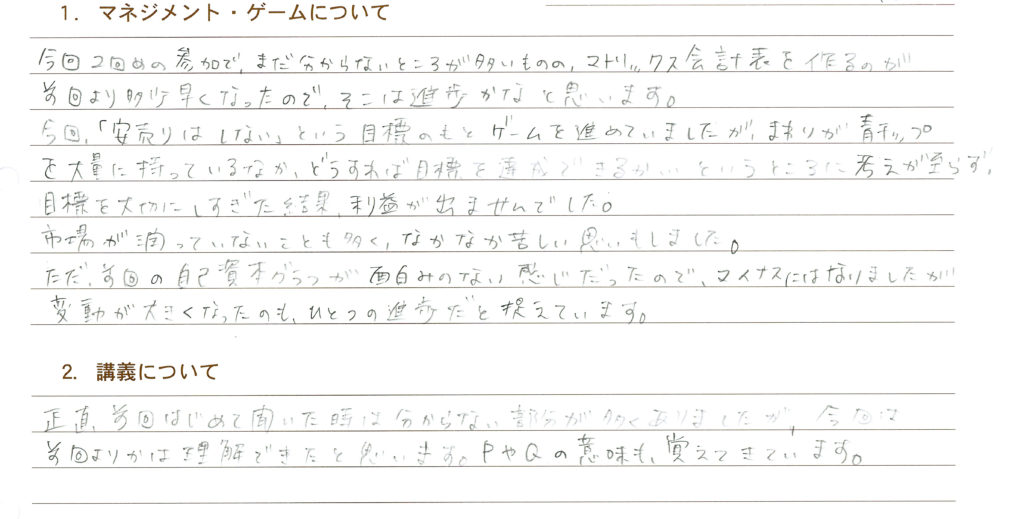 1. マネジメント・ゲームについて
今回2回めの参加で、まだ分からないところが多いものの、マトリックス会計表を作るのが
前回より多少早くなったので、そこは進歩かなと思います。
今回、「安売りはしない」という目標のもとゲームを進めていましたが、まわりが青チップ
を大量に持っているなか、どうすれば目標を達成できるか…というところに考えが至らず、
目標を大切にしすぎた結果、利益が出ませんでした。
市場が潤っていないことも多く、なかなか苦しい思いもしました。
ただ、前回の自己資本グラフが面白みのない感じだったので、マイナスにはなりましたが
変動が大きくなったのも、ひとつの進歩だと捉えています。
2. 講義について
正直、前回はじめて聞いた時は分からない部分が多くありましたが、今回は
前回よりかは理解できたと思います。PやQの意味も、覚えてきています。